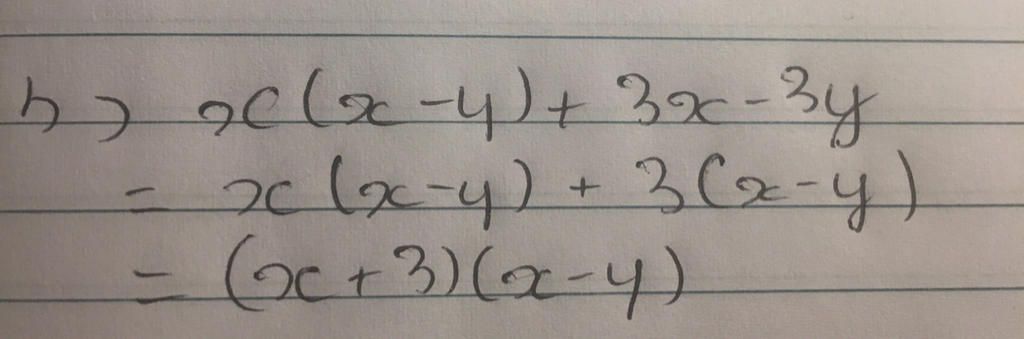 h) x(x-y)+3x-3y
= x(x-y)+3(x-y)
= (x+3)(x-y)